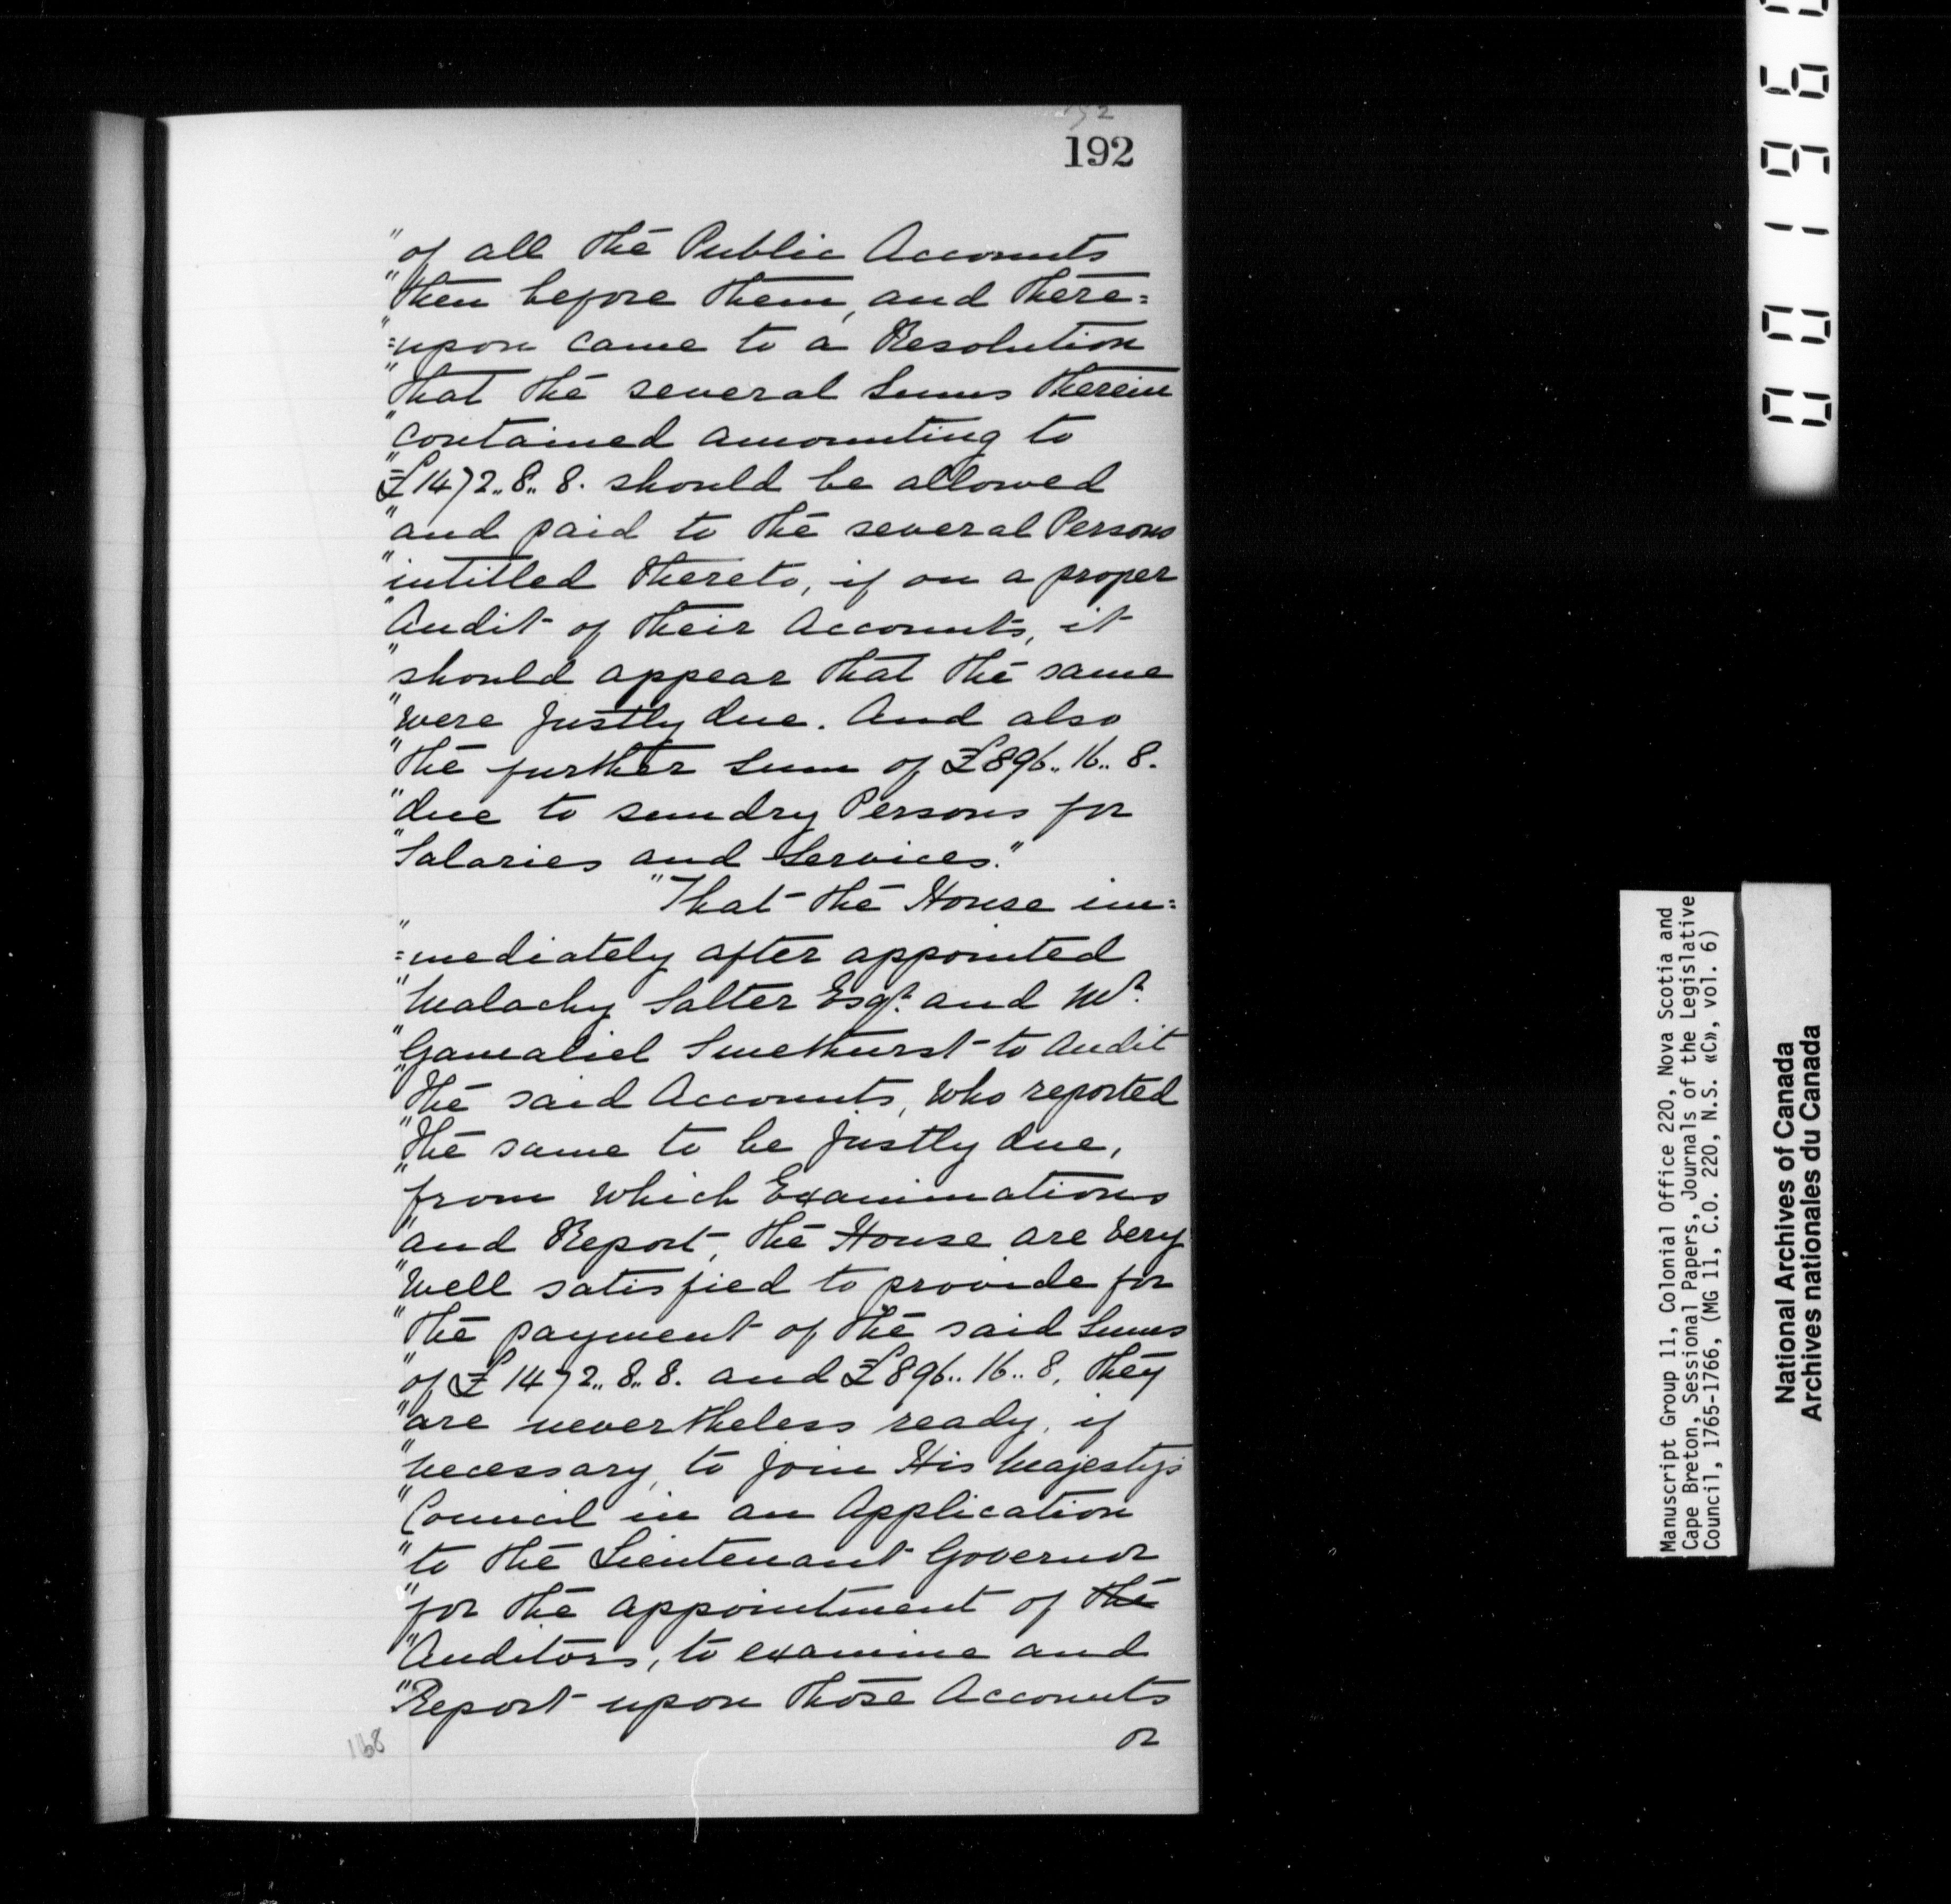 192
192
"of all the Public Accounts
"then before them, and there=
"=upon came to a Resolution
"that the several Sums therein
"contained amounting to
"£1472,,8,,8. should be allowed
"and paid to the several Persons
"intitled thereto, if on a proper
"Audit of their Accounts, it
"should appear that the same
"were justly due. And also
"the further Sum of £896,,16,,8.
"due to sundry Persons for
"Salaries and Services."
"That the House im=
"=mediately after appointed
"Malachy Salter Esqr. and Mr.
"Gamaliel Smethurst to Audit
"the said Accounts, who reported
"the same to be justly due,
"from which Examinations
"and Report, the House are very
"well satisfied to provide for
"the payment of the said Sums
"of £1472,,8,,8. and £896,,16,,8, they
"are nevertheless ready, if
"necessary, to join His Majesty's
"Council in an Application
"to the Lieutenant Governor
"for the appointment of the
"Auditors, to examine and
"Report upon those Accounts
or
168
Manuscript Group 11, Colonial Office 220, Nova Scotia and
Cape Breton, Sessional Papers, Journals of the Legislative
Council, 1765-1766, (MG 11, C.O. 220, N.S. «C», vol. 6)
National Archives of Canada
Archives nationales du Canada